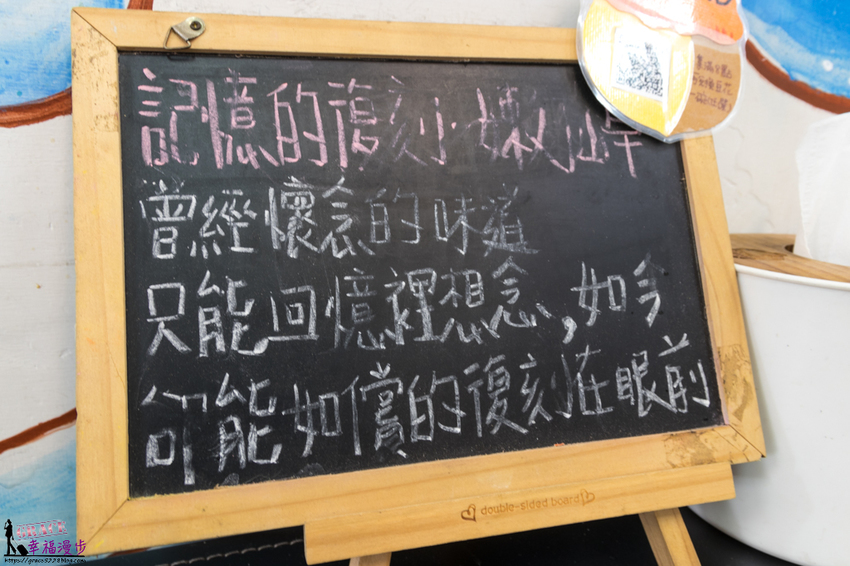 記憶的復刻
曾經懷念的味道
只能回憶裡想念，如今
可能如償的復刻在眼前
double-sided board
GRACE
幸福漫步